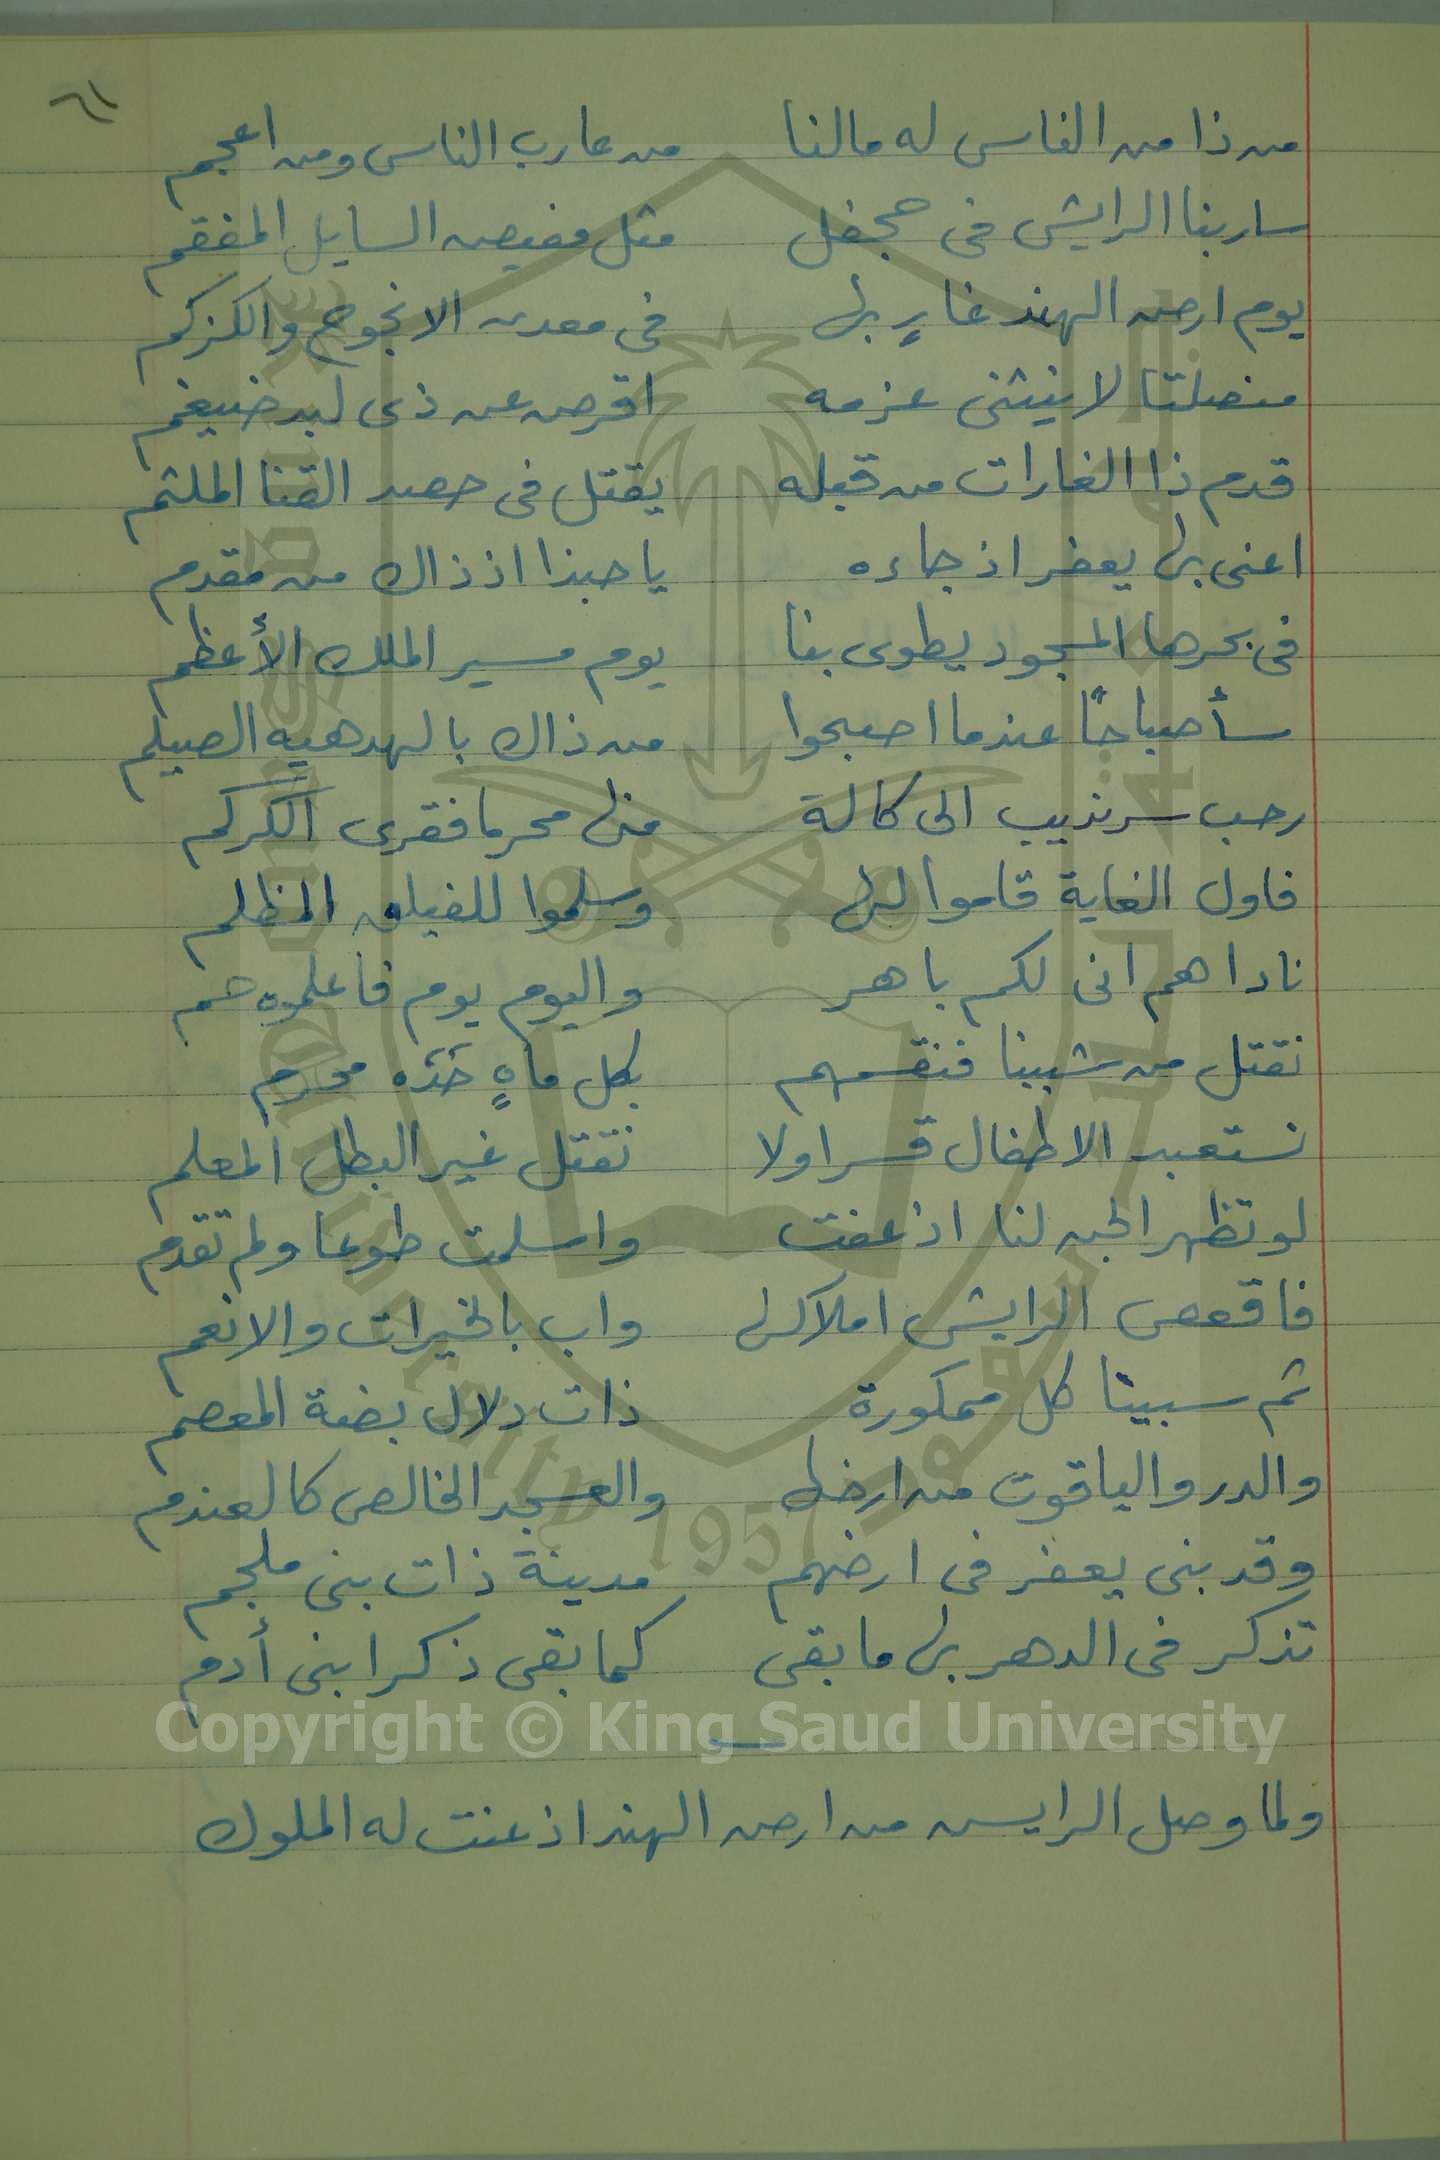 ٦١
من ذا من الناس له مالنا من عارب الناس ومن اعجم
سار بنا الرايش فى جحفل مثل مفيض السايل المفقم
يوم ارض الهند غاز بها فى معدن الانجوج والكزكم
لا ينثنى عزمه اقرص عن ذى لبد ضيغم
قدم ذا الغارات من قبله يقتل فى حصد القنا الملثم
اعنى بها يعفر اذ جاءه يا حبذا اذ ذاك من مقدم
فى بحرها المسجود يطوى بنا يوم مسير الملك الأعظم
سأ صباحًا عندما اصبحوا من ذاك بالهدهية الصيلم
رحب سرنديب الى كالة منها محرما فقرى الكركم
فاول الغاية قاموا لها وسلموا للفيلق المظلم
ناداهم انى لكم باهر واليوم يوم فاعلموه حم
نقتل من شيبنا فنقسمهم بكل ماهٍ خَدَه محرم
نستعبد الاطفال قسرا ولا نقتل غير البطل المعلم
لو تظهر الجن لنا اذ عفت واسلمت طوعا ولم تقدم
فاقعص الرايش املاكها واب بالخيرات والانعم
ثم سبينا كل ممكورة ذات دلال بضة المعصم
والدر والياقوت من ارضها والعسجد الخالص كالعندم
وقد بنى يعفر فى ارضهم مدينة ذات بنى ملجم
تذكر فى الدهر بها ما بقى كما بقى ذكرا بنى أدم
Copyright © King Saud University
ولما وصل الرايس من ارض الهند اذ عنت له الملوك